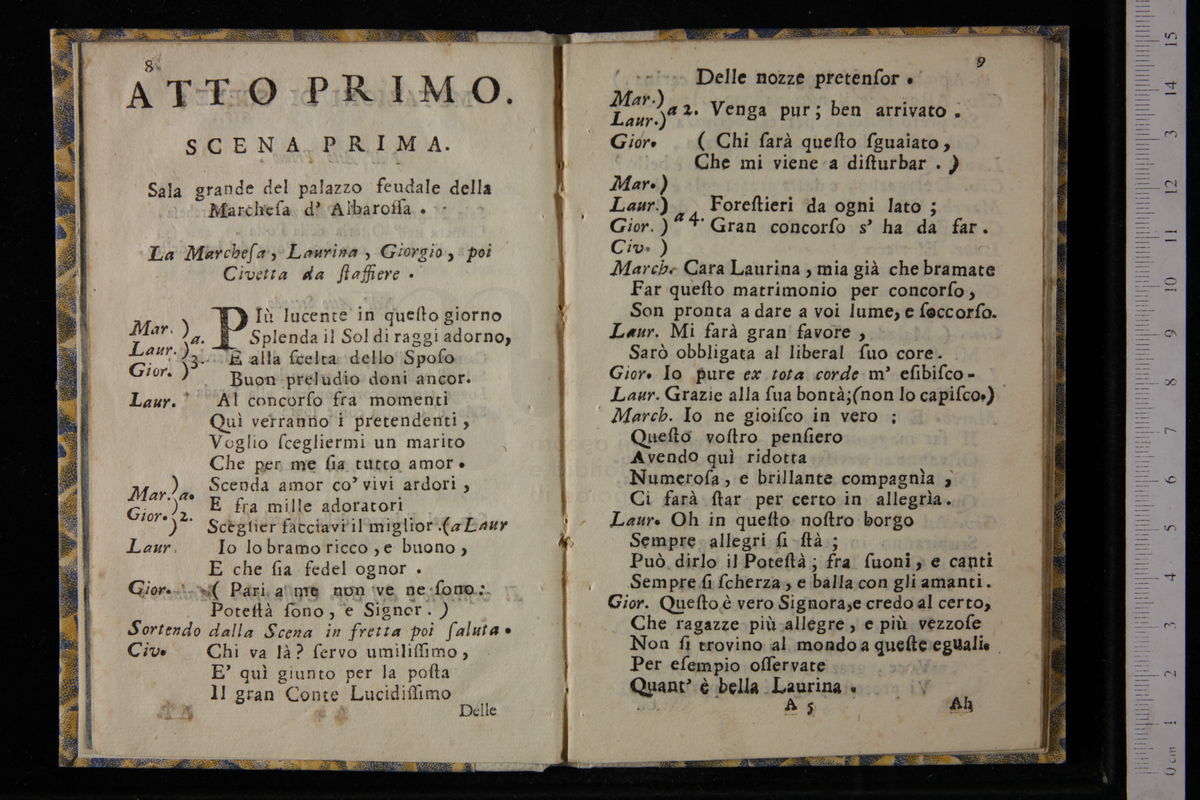 8
ATTO PRIMO.
SCENA PRIMA.
Sala grande del palazzo feudale della
Marcheſa d' Albaroſſa .
La Marcheſa, Laurina , Giorgio, poi
Civetta da ſtaffiere .
Mar. ) a. PIù lucente in queſto giorno
Laur. ) Splenda il Sol di raggi adorno,
Gior. ) 3. E alla ſcelta dello Spoſo
Buon preludio doni ancor.
Laur. Al concorſo fra momenti
Quì verranno i pretendenti ,
Voglio ſcegliermi un marito
Che per me ſia tutto amor .
Mar. ) a. Scenda amor co' vivi ardori ,
Gior. ) 2. E fra mille adoratori
) Sceglier facciavi il miglior .(a Laur
Laur Io lo bramo ricco , e buono ,
E che ſia fedel ognor .
Gior. ( Pari a me non ve ne ſono :
Poteſtà ſono , e Signor . )
Sortendo dalla Scena in fretta poi ſaluta .
Civ. Chi va là ? ſervo umiliſſimo ,
E' quì giunto per la poſta
Il gran Conte Lucidiſſimo
Delle
9
Delle nozze pretenſor .
Mar. )
Laur. ) a 2. Venga pur ; ben arrivato .
Gior. ( Chi ſarà queſto ſguaiato ,
Che mi viene a diſturbar . )
Mar. )
Laur. ) Foreſtieri da ogni lato ;
Gior. ) a 4. Gran concorſo s' ha da far .
Civ. )
March. Cara Laurina , mia già che bramate
Far queſto matrimonio per concorſo ,
Son pronta a dare a voi lume, e ſoccorſo.
Laur. Mi farà gran favore ,
Sarò obbligata al liberal ſuo core .
Gior. Io pure ex tota corde m' eſibiſco -
Laur. Grazie alla ſua bontà;(non lo capiſco.)
March. Io ne gioiſco in vero ;
Queſto voſtro penſiero
Avendo quì ridotta
Numeroſa , e brillante compagnìa ;
Ci farà ſtar per certo in allegrìa .
Laur. Oh in queſto noſtro borgo
Sempre allegri ſi ſtà ;
Può dirlo il Poteſtà ; fra ſuoni , e canti
Sempre ſi ſcherza , e balla con gli amanti .
Gior. Queſto è vero Signora,e credo al certo,
Che ragazze più allegre , e più vezzoſe
Non ſi trovino al mondo a queſte eguali.
Per eſempio oſſervate
Quant' è bella Laurina .
A 5
Ah
0 cm 1 2 3 4 5 6 7 8 9 10 11 12 13 14 15